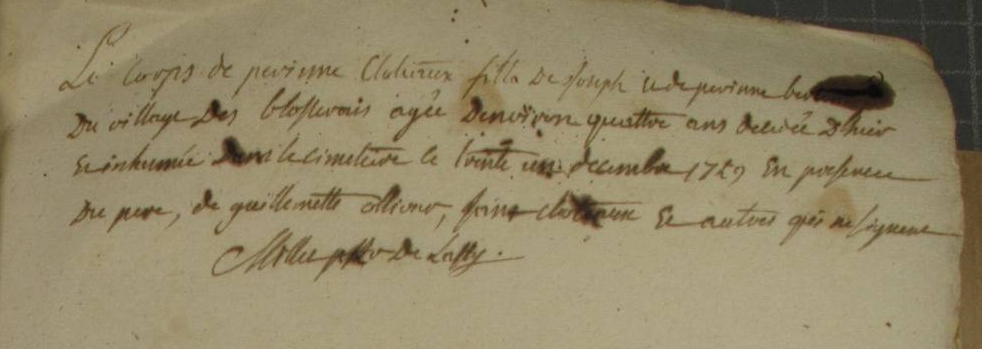 Le corps de perinne Clolieux fille De Joseph et de perinne
Du village Des blosserais agée Denviron quattre ans decedée D'hier
Et inhumée Dans le cimetiere le trente un decembre 1759 En presence
Du pere, de guillemette Et autres qui ne signent
De Lassy.